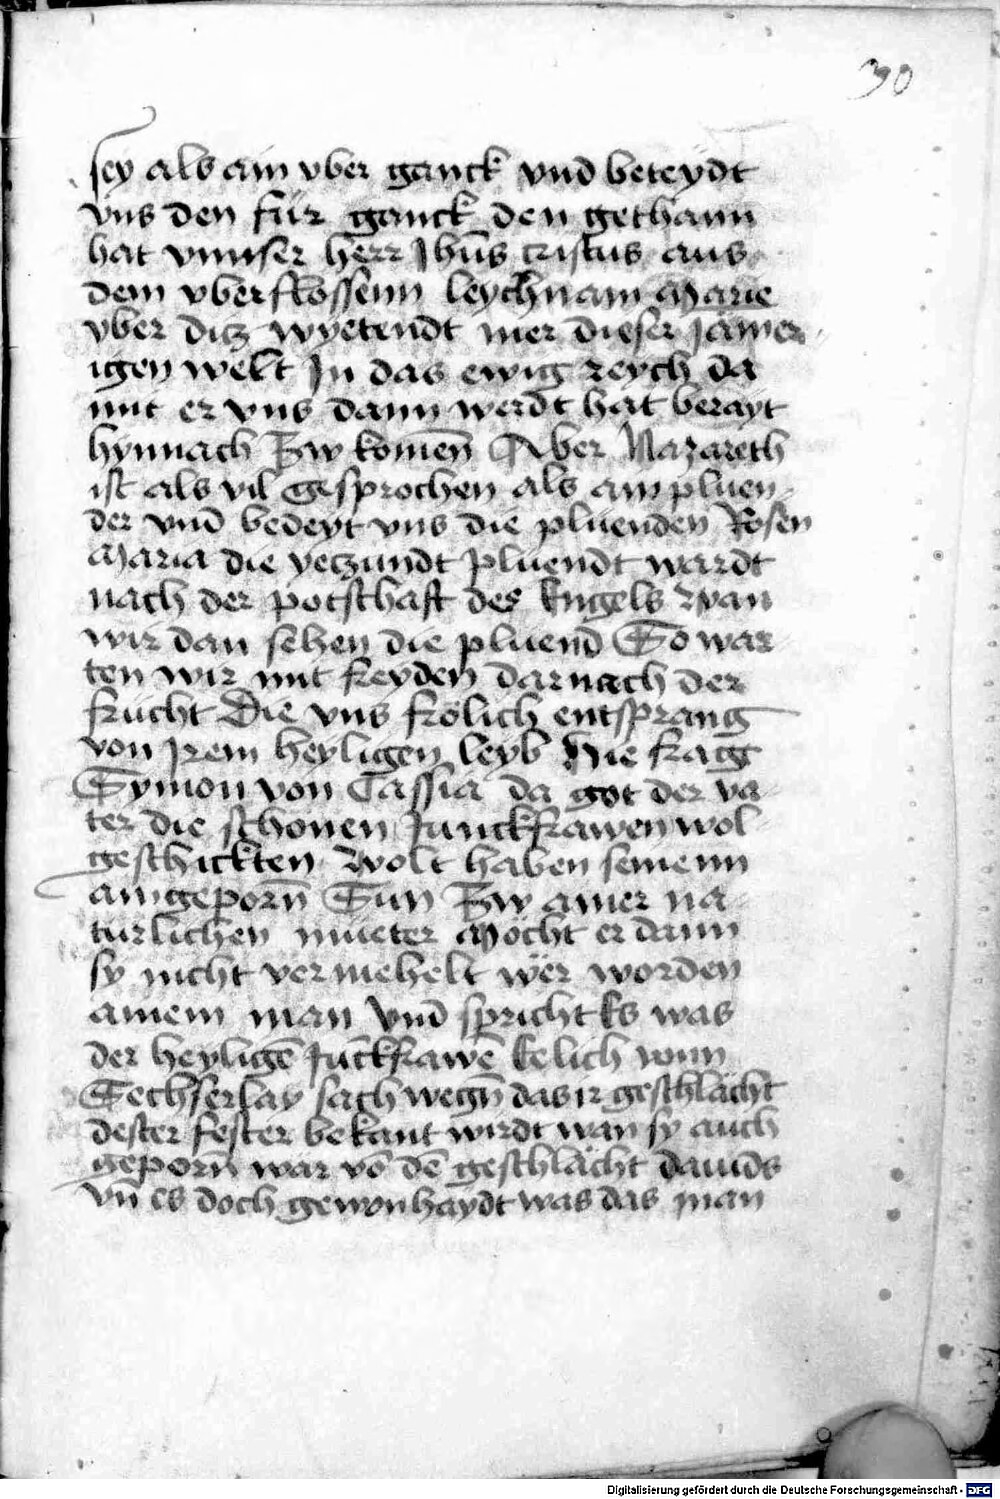 30
sey als ain vber ganck vnd beteydt
vns den für ganck den gethann
hat vnnser herr Jhũs cristus aus
dem vberflossenn leychnam Marie
vber ditz wyetendt mer dieser jamer-
igen welt In das ewig reych da
mit er vns dann werdt hat berayt
hynnach Zw komen̄ Aber Nazareth
ist als vil gesprochen als ain pluen-
der vnd bedeyt vns die pluenden Rosen
Maria die yetzundt pluendt wardt
nach der potschaft des Engels wan
wir dan sehen die pluend So war-
ten wir mit freyden darnach der
frücht Die vns frölich entsprang
von Jrem heyligen leyb Hie fragt
Symon von Cassia da got der va-
ter die schonen Junckfrawen wol
geschickten wolt haben seinenn
aingeporn̄ Sun Zw ainer na-
turlichen müeter Möcht er dann
sy nicht vermehelt wër worden
ainem man Vnd spricht Es was
der heyligē Juckfrawē Eelich vonn
Sechserlay sach wegn̄ das ir geschlächt
dester fester bekant wirdt wan sy auch
geporn̄ war vō dē geschlächt dauids
vn̄ es doch gewonhaydt was das man
Digitalisierung gefördert durch die Deutsche Forschungsgemeinschaft - DFG